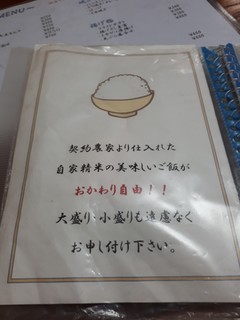 MENU
揚げ物
契約農家より仕入れた
自家精米の美味しいご飯が
おかわり自由！！
大盛り・小盛りも遠慮なく
お申し付け下さい。